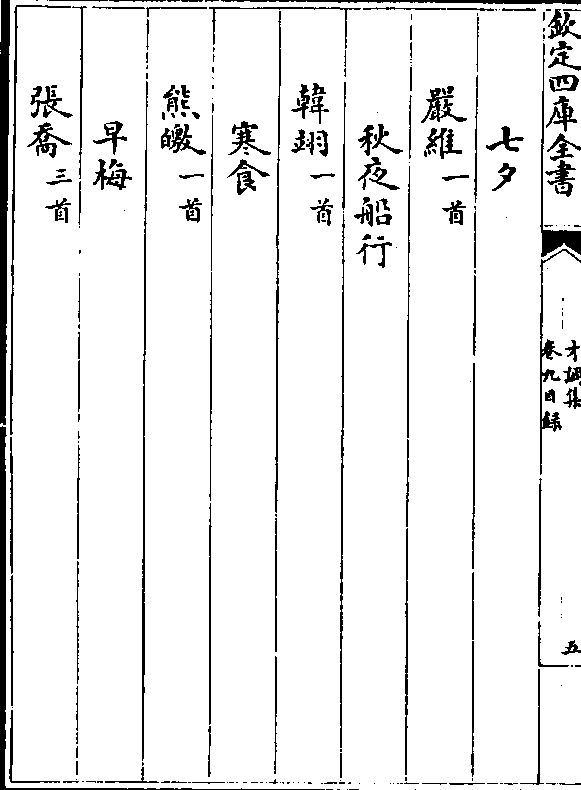 欽定四庫全書
才調集
卷九目録
五
七夕
嚴維一首
秋夜船行
韓翃一首
寒食
熊皦一首
早梅
張喬三首